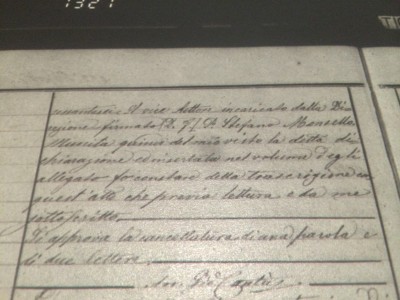 1321
Il vice Rettore incaricato dalla Di
rezione firmato P. Stefano
Munita quindi del mio visto la detta di
chiarazione ed inseritala nel volume degli
allegati fo constare della trascrizione in
quest'atto che previa lettura è da me
sottoscritto
Si approva la cancellatura di una parola e
di due lettere